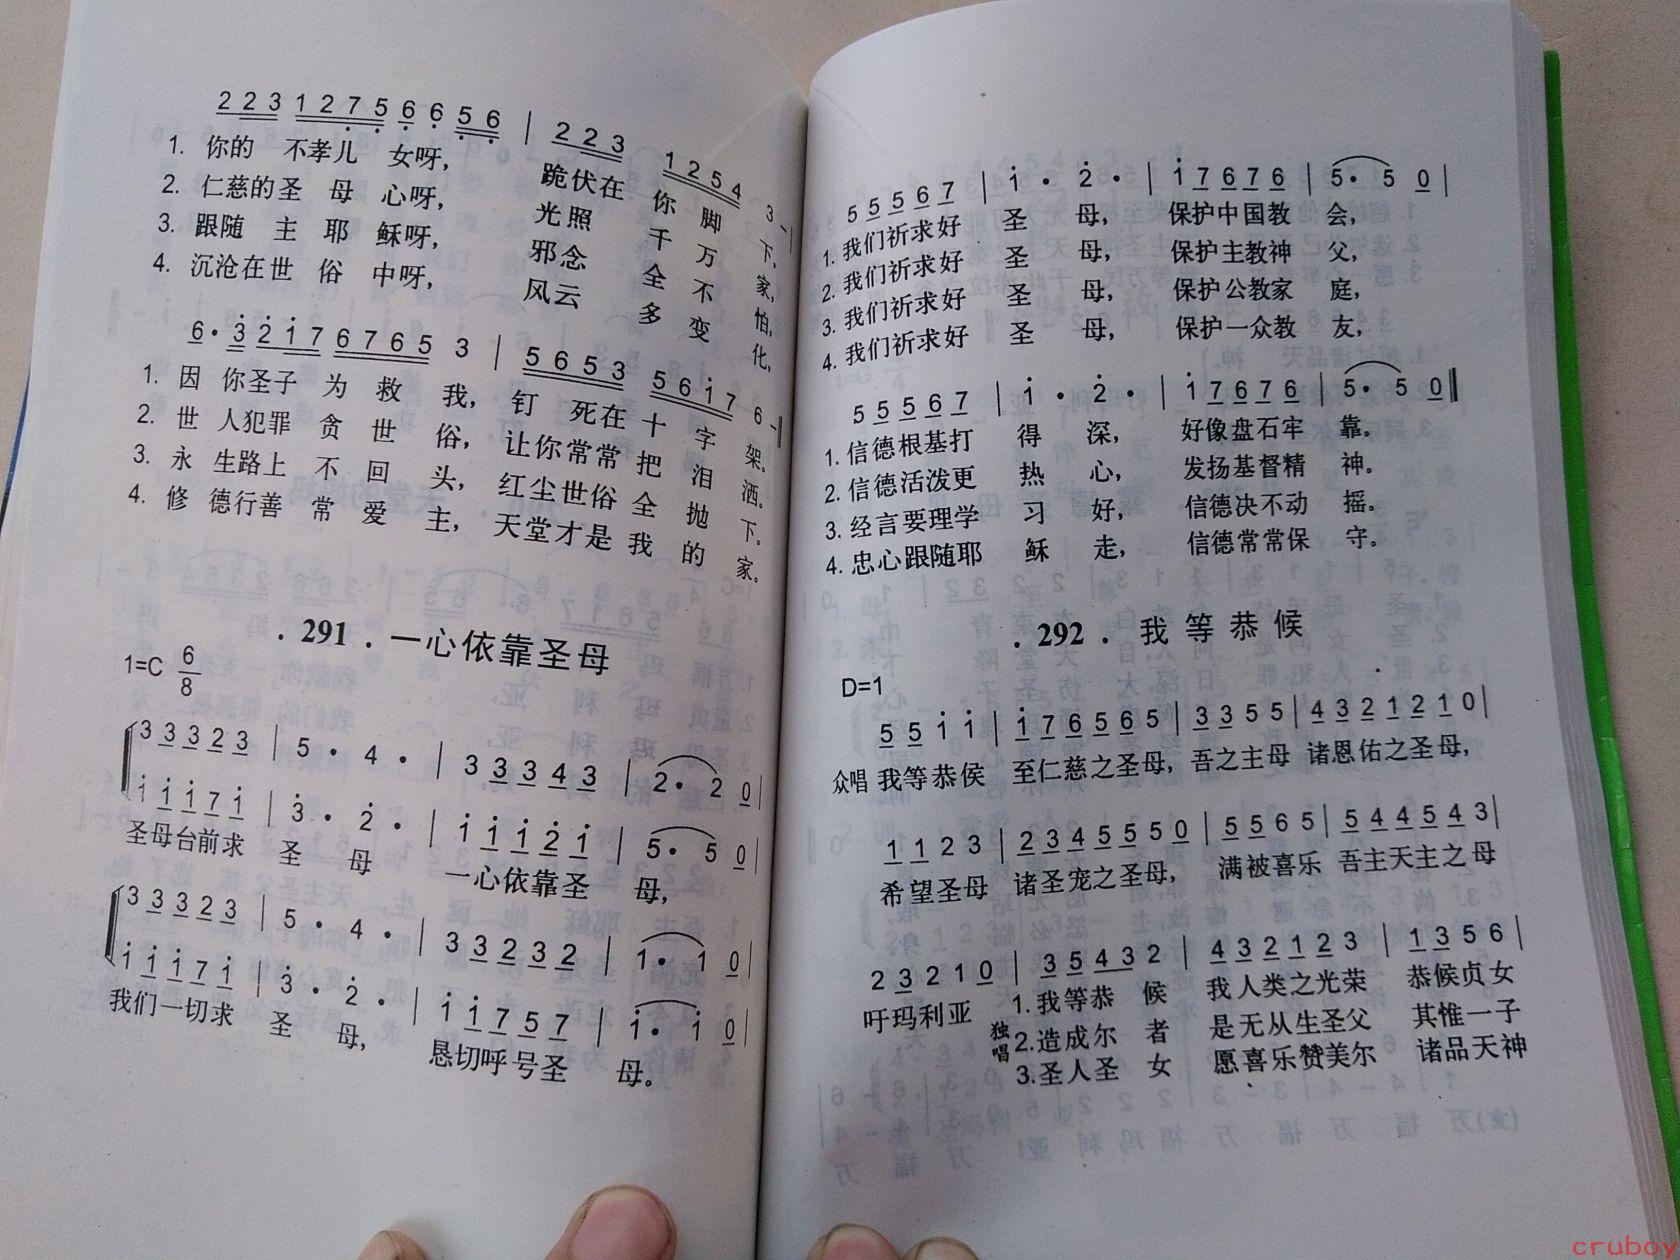 2 2 3 1 2 7 5 6 6 5 6 | 2 2 3 1 2 5 4 3 - |
1. 你的 不孝儿 女呀, 跪伏在 你 脚 下,
2. 仁慈的圣 母 心呀, 光照 千 万 家,
3. 跟随 主 耶 稣呀, 邪念 全 不 怕,
4. 沉沦在世 俗 中呀, 风云 多 变 化,
6· 3 2 1 7 6 7 6 5 3 | 5 6 5 3 5 6 1 7 6 - ‖
1. 因 你圣子 为 救 我, 钉 死在 十 字 架。
2. 世 人犯罪 贪 世 俗, 让你常常 把 泪 洒。
3. 永 生路上 不 回 头, 红尘世俗 全 抛 下。
4. 修 德行善 常 爱 主, 天堂才是 我 的 家。
. 291 . 一心依靠圣母
1=C 6/8
3 3 3 2 3 | 5 · 4 · | 3 3 3 4 3 | 2 · 2 0 |
1 1 1 7 1 | 3 · 2 · | 1 1 1 2 1 | 5 · 5 0 |
圣母台前求 圣 母 一心依靠圣 母,
3 3 3 2 3 | 5 · 4 · | 3 3 2 3 2 | 1 · 1 0 |
1 1 1 7 1 | 3 · 2 · | 1 1 7 5 7 | 1 · 1 0 |
我们一切求 圣 母, 恳切呼号圣 母。
5 5 5 6 7 | 1 · 2 · | 1 7 6 7 6 | 5 · 5 0 |
1. 我们祈求好 圣 母, 保护中国教 会,
2. 我们祈求好 圣 母, 保护主教神 父,
3. 我们祈求好 圣 母, 保护公教家 庭,
4. 我们祈求好 圣 母, 保护一众教 友,
5 5 5 6 7 | 1 · 2 · | 1 7 6 7 6 | 5 · 5 0 ‖
1. 信德根基打 得 深, 好像盘石牢 靠。
2. 信德活泼更 热 心, 发扬基督精 神。
3. 经言要理学 习 好, 信德决不动 摇。
4. 忠心跟随耶 稣 走, 信德常常保 守。
. 292 . 我等恭候
D=1
5 5 1 1 | 1 7 6 5 6 5 | 3 3 5 5 | 4 3 2 1 2 1 0 |
众唱 我等恭侯 至仁慈之圣母, 吾之主母 诸恩佑之圣母,
1 1 2 3 | 2 3 4 5 5 5 0 | 5 5 6 5 | 5 4 4 5 4 3 |
希望圣母 诸圣宠之圣母, 满被喜乐 吾主天主之母
2 3 2 1 0 | 3 5 4 3 2 | 4 3 2 1 2 3 | 1 3 5 6 |
吁玛利亚 独唱 1. 我等恭 候 我人类之光荣 恭候贞女
2. 造成尔 者 是无从生圣父 其惟一子
3. 圣人圣 女 愿喜乐赞美尔 诸品天神
cruboy